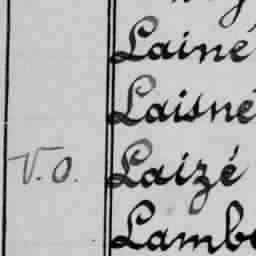 Lainé
Laisné
V.O. Laizé